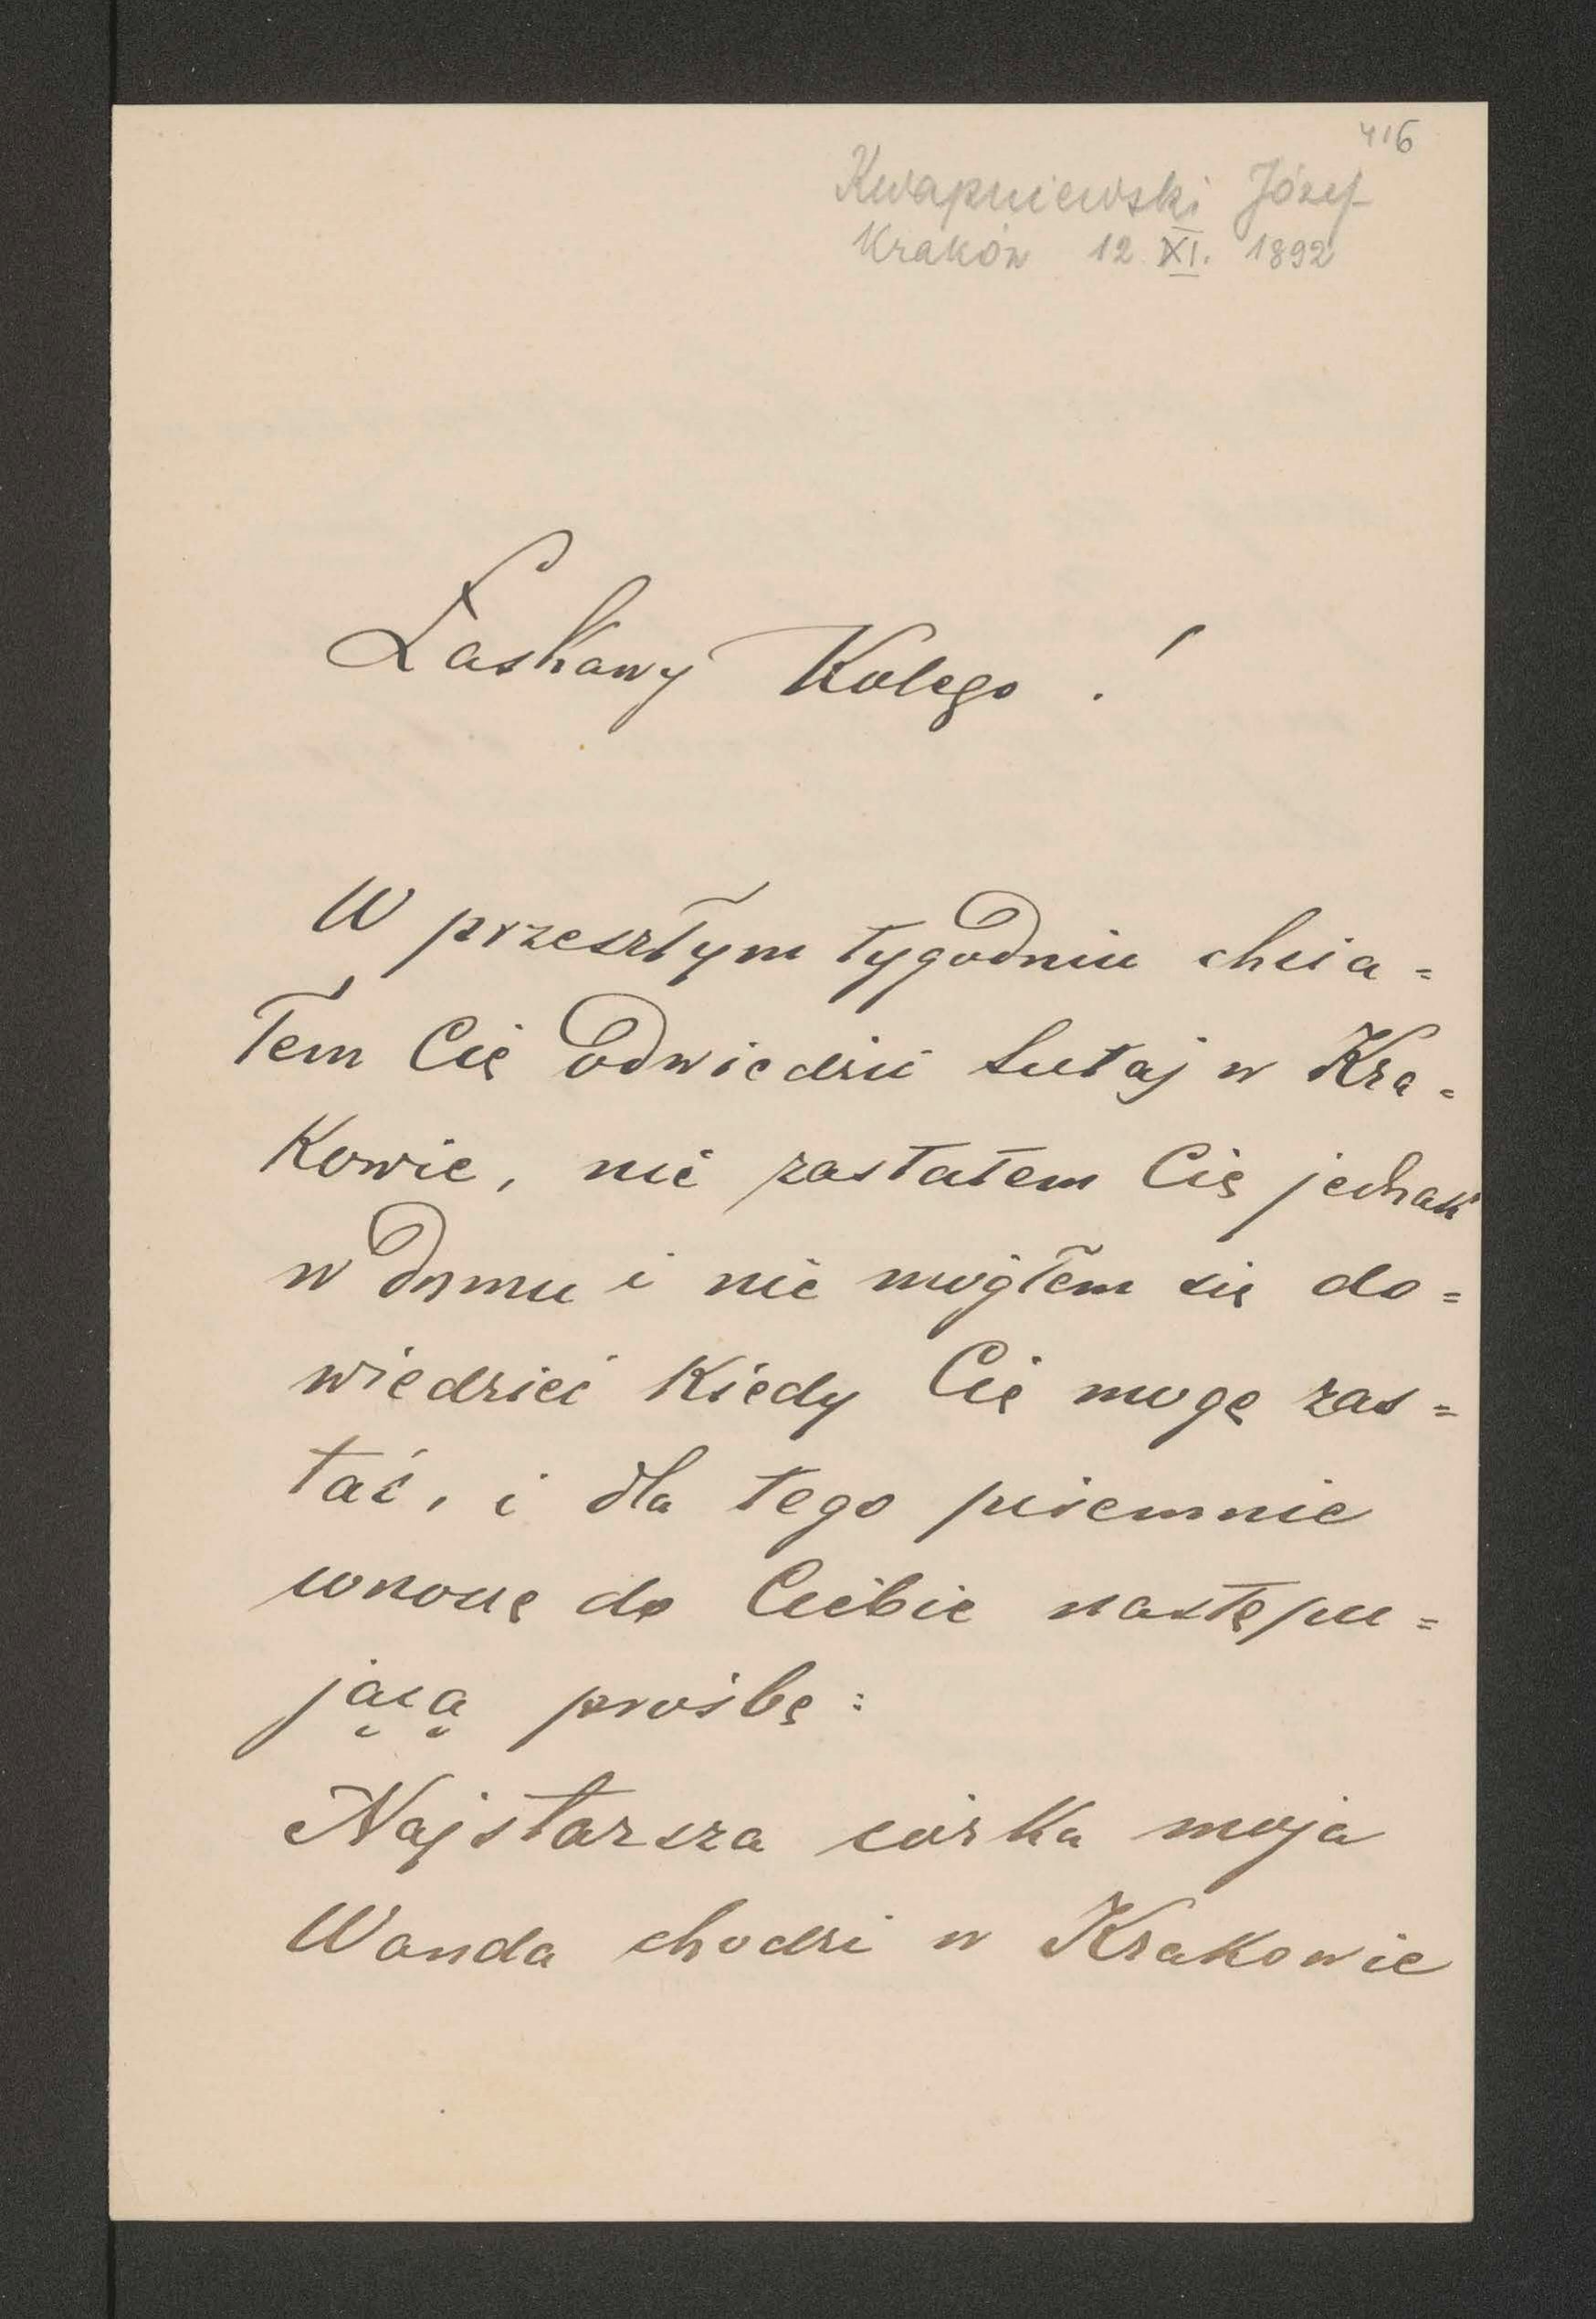 416
Kwapniewski Józef
Kraków 12 XI. 1892
Łaskawy Kolego !
W przeszłym tygodniu chcia=
łem Cię odwiedzić tutaj w Kra=
kowie, nie zastałem Cię jednak
w domu i nie mogłem się do=
wiedzieć kiedy Cię mogę zas=
tać, i dla tego pisemnie
wnoszę do Ciebie następu=
jącą prośbę:
Najstarsza córka moja
Wanda chodzi w Krakowie